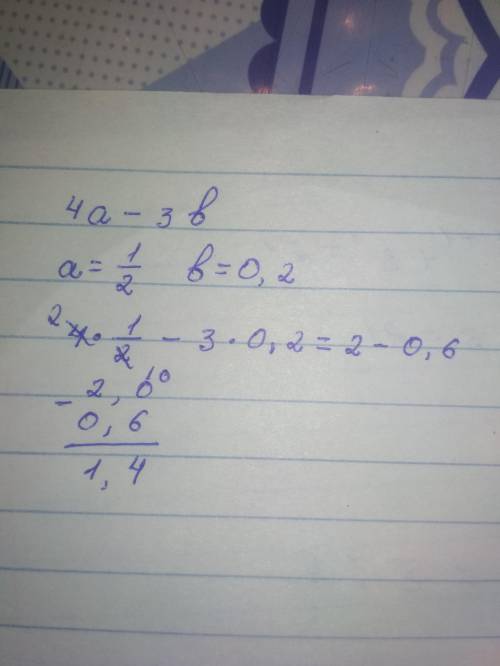 4a - 3b
a = 1/2 b = 0,2
2 4 · 1/2 - 3 · 0,2 = 2 - 0,6
- 2,0 10
0,6
1,4